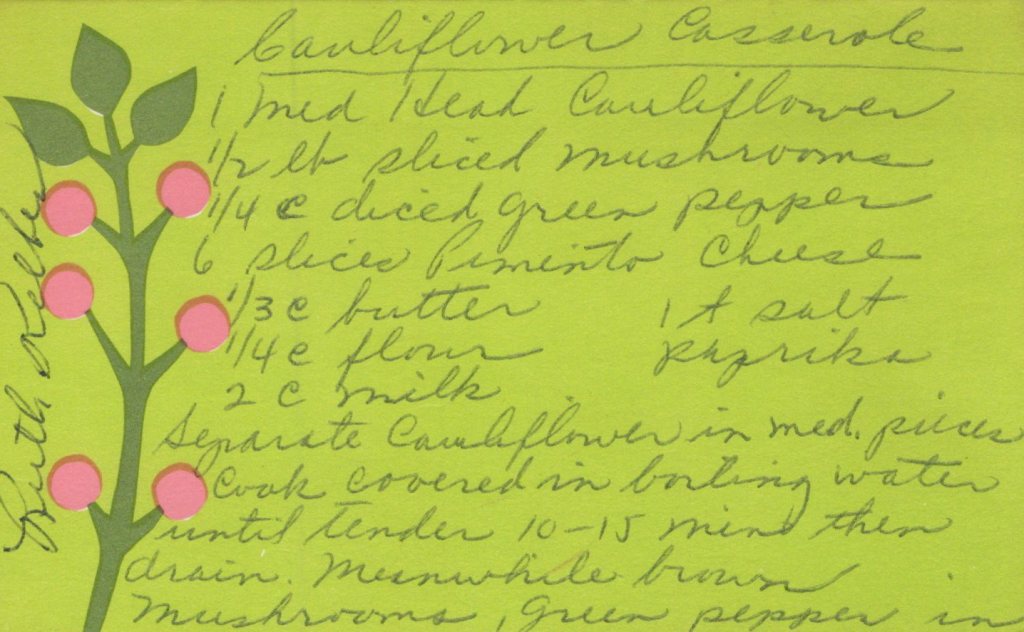 Cauliflower Casserole
1 Med Head Cauliflower
1/2 lb sliced mushrooms
1/4 c diced green pepper
6 slices Pimento Cheese
1/3 c butter 1 t salt
1/4 c flour paprika
2 c milk
Separate Cauliflower in med. pieces
Cook covered in boiling water
until tender 10-15 mins then
drain. Meanwhile brown
Mushrooms, green pepper in
Ruth